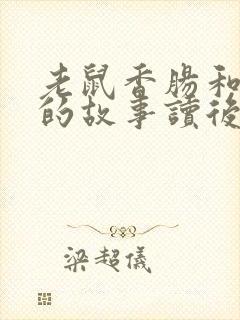 老鼠香腸和
的故事讀後
梁超儀